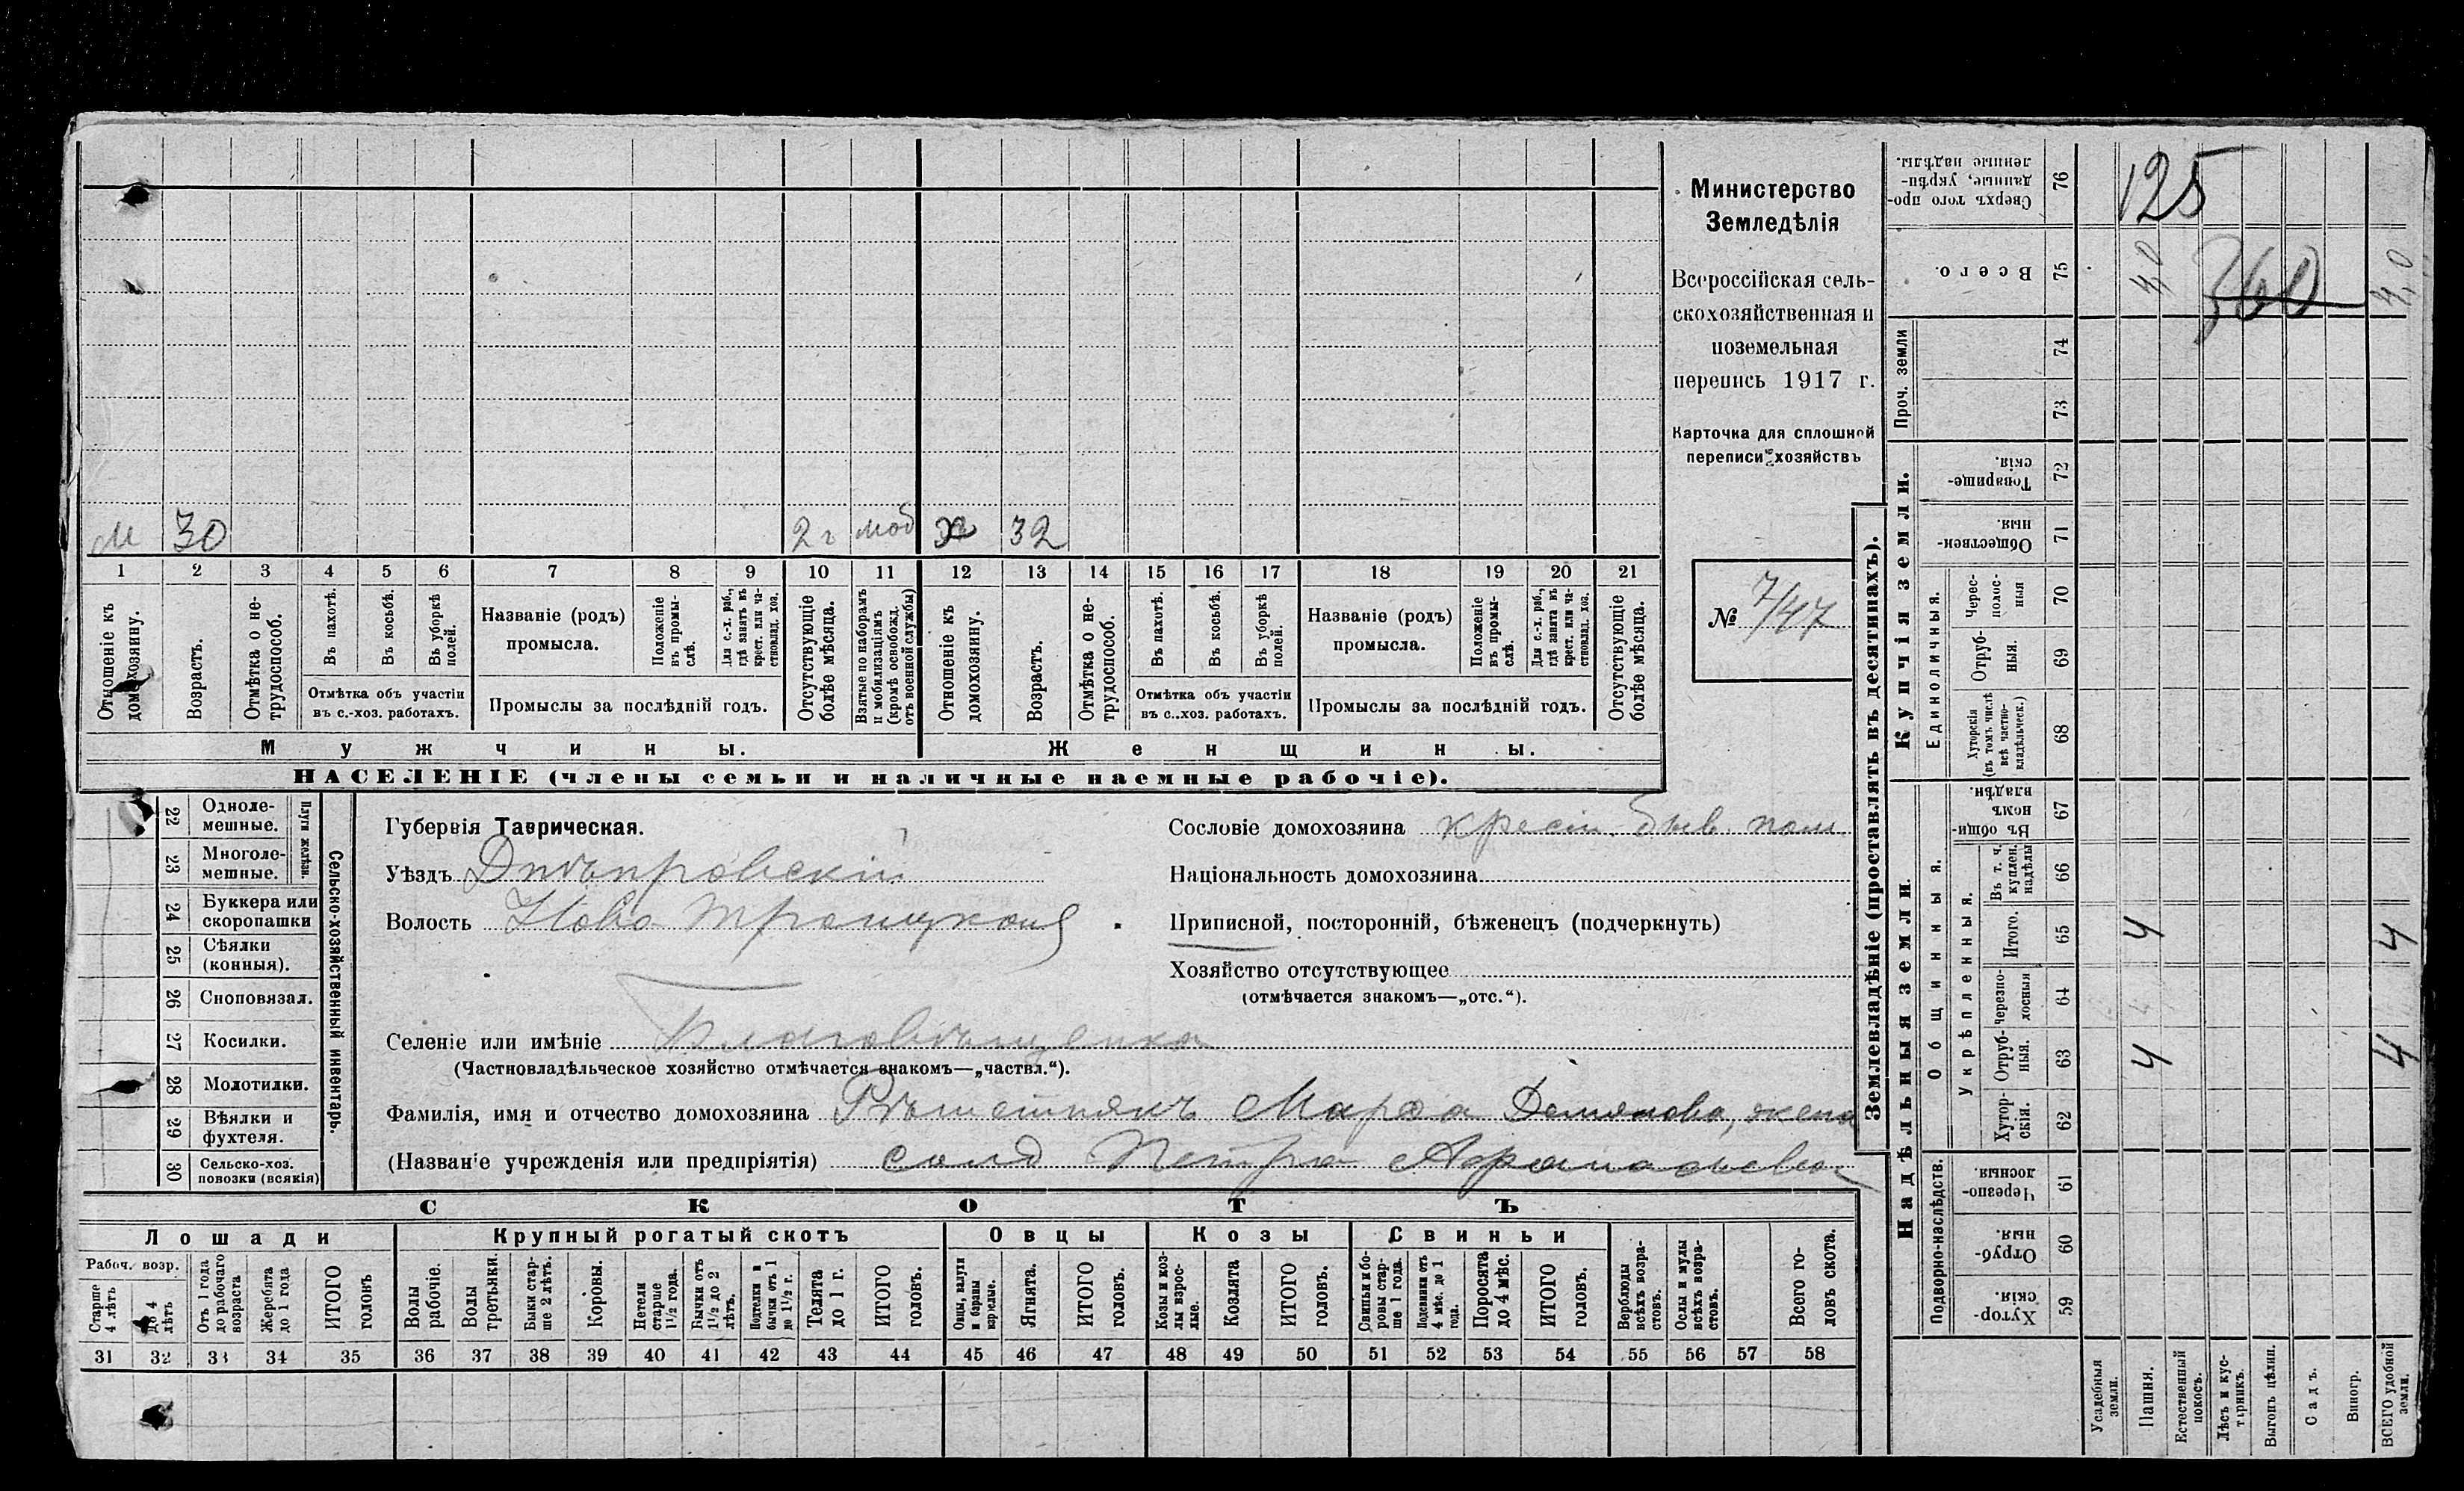 м 30 2 г моб х 32
1 2 3 4 5 6 7 8 9 10 11 12 13 14 15 16 17 18 19 20 21
Отношеніе къ домохозяину.
Возрастъ.
Отмѣтка о не-
трудоспособ.
Въ пахотѣ.
Въ косьбѣ.
Въ уборкѣ
полей.
Отмѣтка объ участіи
въ с.-хоз. работахъ.
Названіе (родъ)
промысла.
Положеніе
въ промы-
слѣ.
Для с.-х. раб.,
гдѣ занятъ въ
крест. или ча-
стновлад. хоз.
Промыслы за послѣдній годъ.
Отсутствующіе
болѣе мѣсяца.
Взятые по наборамъ
и мобилизаціямъ
(кромѣ освобожд.
отъ военной службы)
Отношеніе къ
домохозяину.
Возрастъ.
Отмѣтка о не-
трудоспособ.
Въ пахотѣ.
Въ косьбѣ.
Въ уборкѣ
полей.
Отмѣтка объ участіи
въ с..хоз. работахъ.
Названіе (родъ)
промысла.
Положеніе
въ промы-
слѣ.
Для с.-х. раб.,
гдѣ занята въ
крест. или ча-
стновлад. хоз.
Промыслы за послѣдній годъ.
Отсутствующіе
болѣе мѣсяца.
Мужчины.
Женщины.
НАСЕЛЕНІЕ (члены семьи и наличные наемные рабочіе).
Министерство
Земледѣлія
Всероссійская сель-
скохозяйственная и
поземельная
перепись 1917 г.
Карточка для сплошной
переписи хозяйствъ
№ 7/47
Сельско-хозяйственный инвентарь.
Плуги желѣзн.
22 Одноле-
мешные.
23 Многоле-
мешные.
24 Буккера или
скоропашки
25 Сѣялки
(конныя).
26 Сноповязал.
27 Косилки.
28 Молотилки.
29 Вѣялки и
фухтеля.
30 Сельско-хоз.
повозки (всякія)
Губернія Таврическая.
Уѣздъ Днѣпровскій
Волость Ново Троицкая
Селеніе или имѣніе Благовѣщенка
(Частновладѣльческое хозяйство отмѣчается знакомъ—„частвл.“).
Фамилія, имя и отчество домохозяина Рѣшетнякъ Марфа Демянова, жена
(Названіе учрежденія или предпріятія) солд Петра Афанасьева
Сословіе домохозяина крест. бывш пом.
Національность домохозяина
Приписной, посторонній, бѣженецъ (подчеркнуть)
Хозяйство отсутствующее
(отмѣчается знакомъ—„отс.“).
СКОТЪ
Лошади
Рабоч. возр.
Старше
4 лѣтъ
до 4
лѣтъ
Отъ 1 года
до рабочаго
возраста
Жеребята
до 1 года
ИТОГО
головъ
Крупный рогатый скотъ
Волы
рабочіе.
Волы
третьяки.
Быки стар-
ше 2 лѣтъ.
Коровы.
Нетели
старше
1 1/2 года.
Бычки отъ
1 1/2 до 2
лѣтъ.
Подтелки и
бычки отъ 1
до 1 1/2 г.
Телята
до 1 г.
ИТОГО
головъ.
Овцы
Овцы, валухи
и бараны
взрослые.
Ягнята.
ИТОГО
головъ.
Козы
Козы и коз-
лы взрос-
лые.
Козлята
ИТОГО
головъ.
Свиньи
Свиньи и бо-
ровы стар-
ше 1 года.
Подсвинки отъ
4 мѣс. до 1
года.
Поросята
до 4 мѣс.
ИТОГО
головъ.
Верблюды
всѣхъ возра-
стовъ.
Ослы и мулы
всѣхъ возра-
стовъ.
Всего го-
ловъ скота.
31 32 33 34 35 36 37 38 39 40 41 42 43 44 45 46 47 48 49 50 51 52 53 54 55 56 57 58
Землевладѣніе (проставлять въ десятинахъ).
Сверхъ того про-
данные, укрѣп-
ленные надѣлы.
76
125
Всего.
75
4,0
360
4,0
Купчія земли.
Проч. земли
74
73
Товарище-
скія.
72
Обществен-
ныя.
71
Единоличныя.
Черес-
полос-
ныя
70
Отруб-
ныя.
69
Хуторскія
(въ томъ числѣ
всѣ частно-
владѣльческ.)
68
Надѣльныя земли
Общинныя.
Въ общин-
номъ
владѣн.
67
Укрѣпленныя.
Въ т. ч.
куплен.
надѣлы
66
Итого.
65
4 4
Черезпо-
лосныя
64
Отруб-
ныя.
63
4 4
Хутор-
скія.
62
Подворно-наслѣдств.
Черезпо-
лосныя
61
Отруб-
ныя.
60
Хутор-
скія.
59
Усадебныя
земли.
Пашня.
Естественный
покосъ.
Лѣсъ и кус-
тарникъ.
Выгонъ цѣлин.
Садъ.
Виногр.
ВСЕГО удобной
земли.